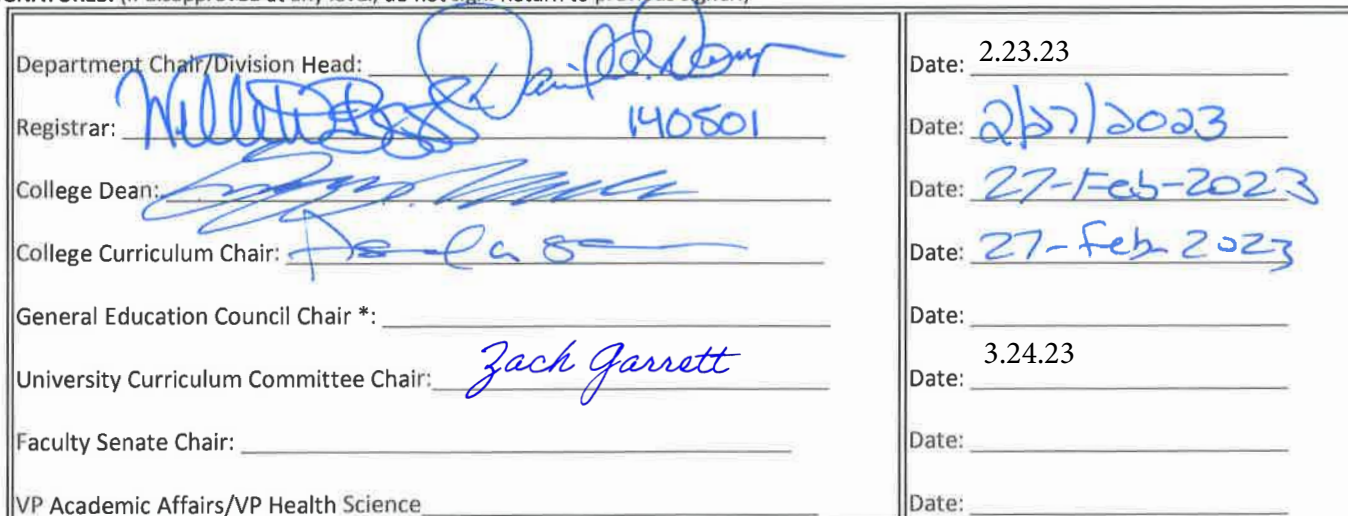 SIGNATURES: (If disapproved at any level, do not sign. Return to previous signer.)
Department Chair/Division Head: Date: 2.23.23
Registrar: 140501 Date: 2/27/2023
College Dean: Date: 27-Feb-2023
College Curriculum Chair: Date: 27-Feb-2023
General Education Council Chair *: Date:
University Curriculum Committee Chair: Zach Garrett Date: 3.24.23
Faculty Senate Chair: Date:
VP Academic Affairs/VP Health Science Date: